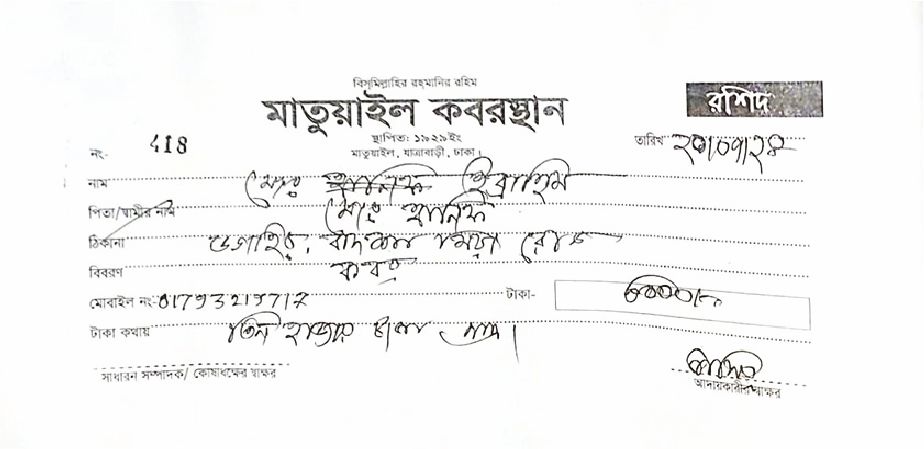 বিস্‌মিল্লাহির রহমানির রহিম
মাতুয়াইল কবরস্থান
রশিদ
স্থাপিত: ১৯২৯ইং
মাতুয়াইল, যাত্রাবাড়ী, ঢাকা।
নং- 418
তারিখ
নাম মোঃ হানিফ ইব্রাহিম
পিতা/স্বামীর নাম মোঃ হানিফ
ঠিকানা রোড
বিবরণ কবর
মোবাইল নং- টাকা- ৩০০০/=
টাকা কথায় তিন হাজার টাকা মাত্র।
সাধারন সম্পাদক/ কোষাধক্ষের স্বাক্ষর
আদায়কারীর স্বাক্ষর